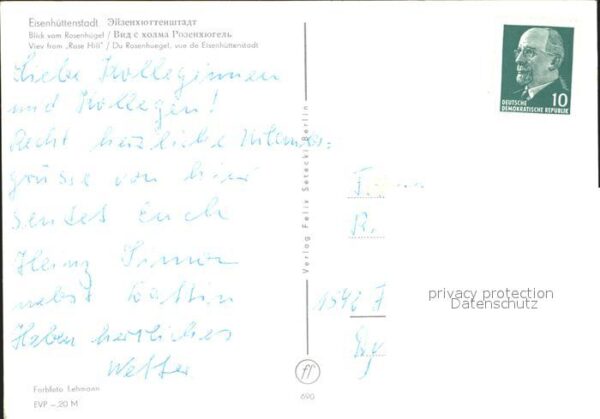 Eisenhüttenstadt Эйзенхюттенштадт
Blick vom Rosenhügel / Вид с холма Розенхюгель
Viev from „Rose Hill” / Du Rosenhuegel, vue de Eisenhüttenstadt
Liebe Kolleginnen
und Kollegen!
Recht herzliche Urlaubs=
grüsse von hier
sendet Euch
Heinz
nebst Gattin
Haben herrliches
Wetter
Farbfoto Lehmann
EVP –,20 M
Verlag Felix Setecki Berlin
690
10
DEUTSCHE
DEMOKRATISCHE REPUBLIK
privacy protection
Datenschutz